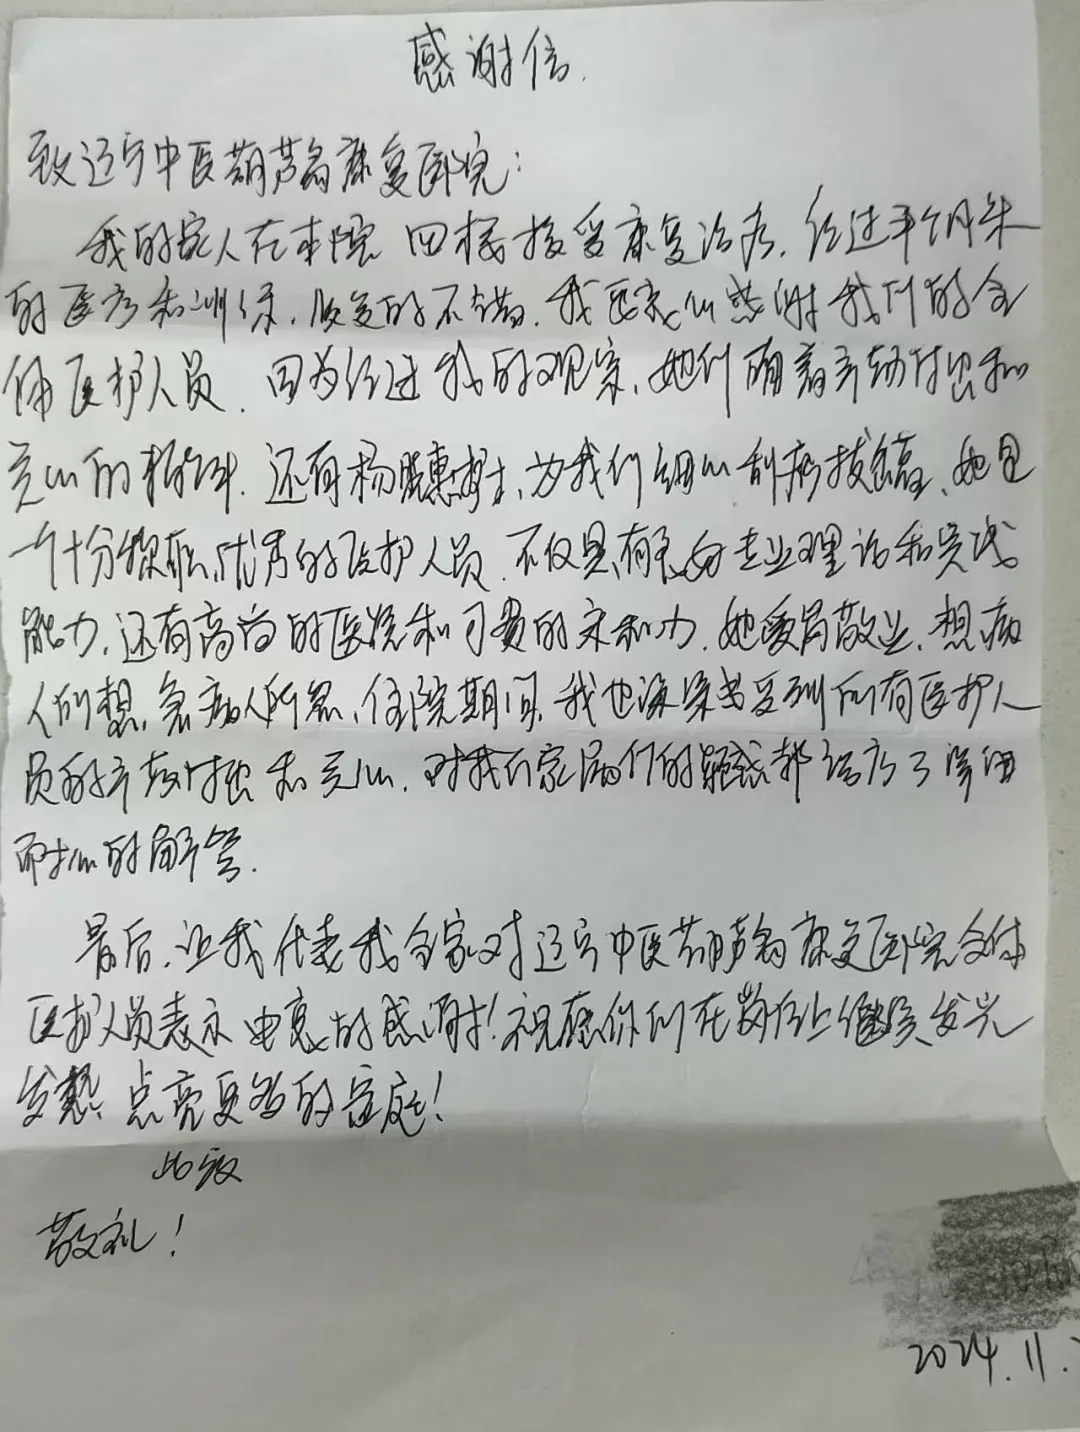 感谢信.
致辽宁中医葫芦岛康复医院:
我的家人在本院 四楼接受康复治疗.经过半个月来
的医疗和训练.恢复的不错.我医衷心感谢我们的全
体医护人员.因为经过我的观察.她们确着辛劳付出和
关心的精神.还有杨 惠护士、为我们细心刮痧拔罐、她是
一个十分 优秀的医护人员.不仅具有良好专业理论和实践
能力.还有高尚的医德和可贵的亲和力.她爱岗敬业.想病
人所想.急病人所急、住院期间.我也深深感受到所有医护人
员的辛劳付出和关心.对我们家属们的疑惑都给予了详细
而耐心的解答.
最后.让我代表我全家对辽宁中医葫芦岛康复医院全体
医护人员表示由衷的感谢!祝愿你们在岗位上继续发光
发热、点亮更多的家庭!
此致
敬礼!
2024.11.